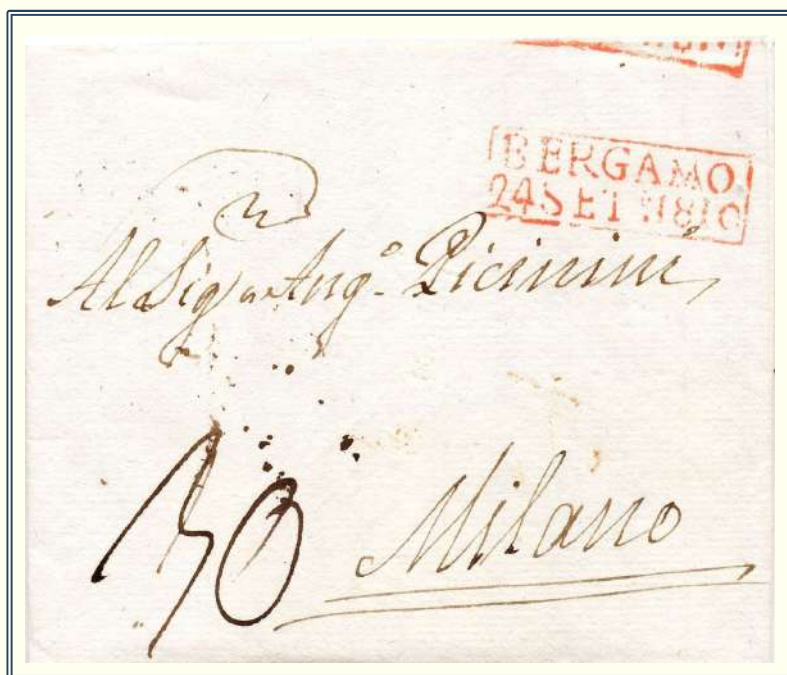 BERGAMO
24 SET 1810
Al Sig. Ang.º Picinini
30
Milano